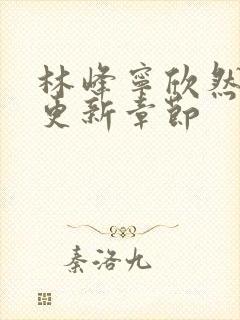 林峰寧欣然
更新章節
秦洛九